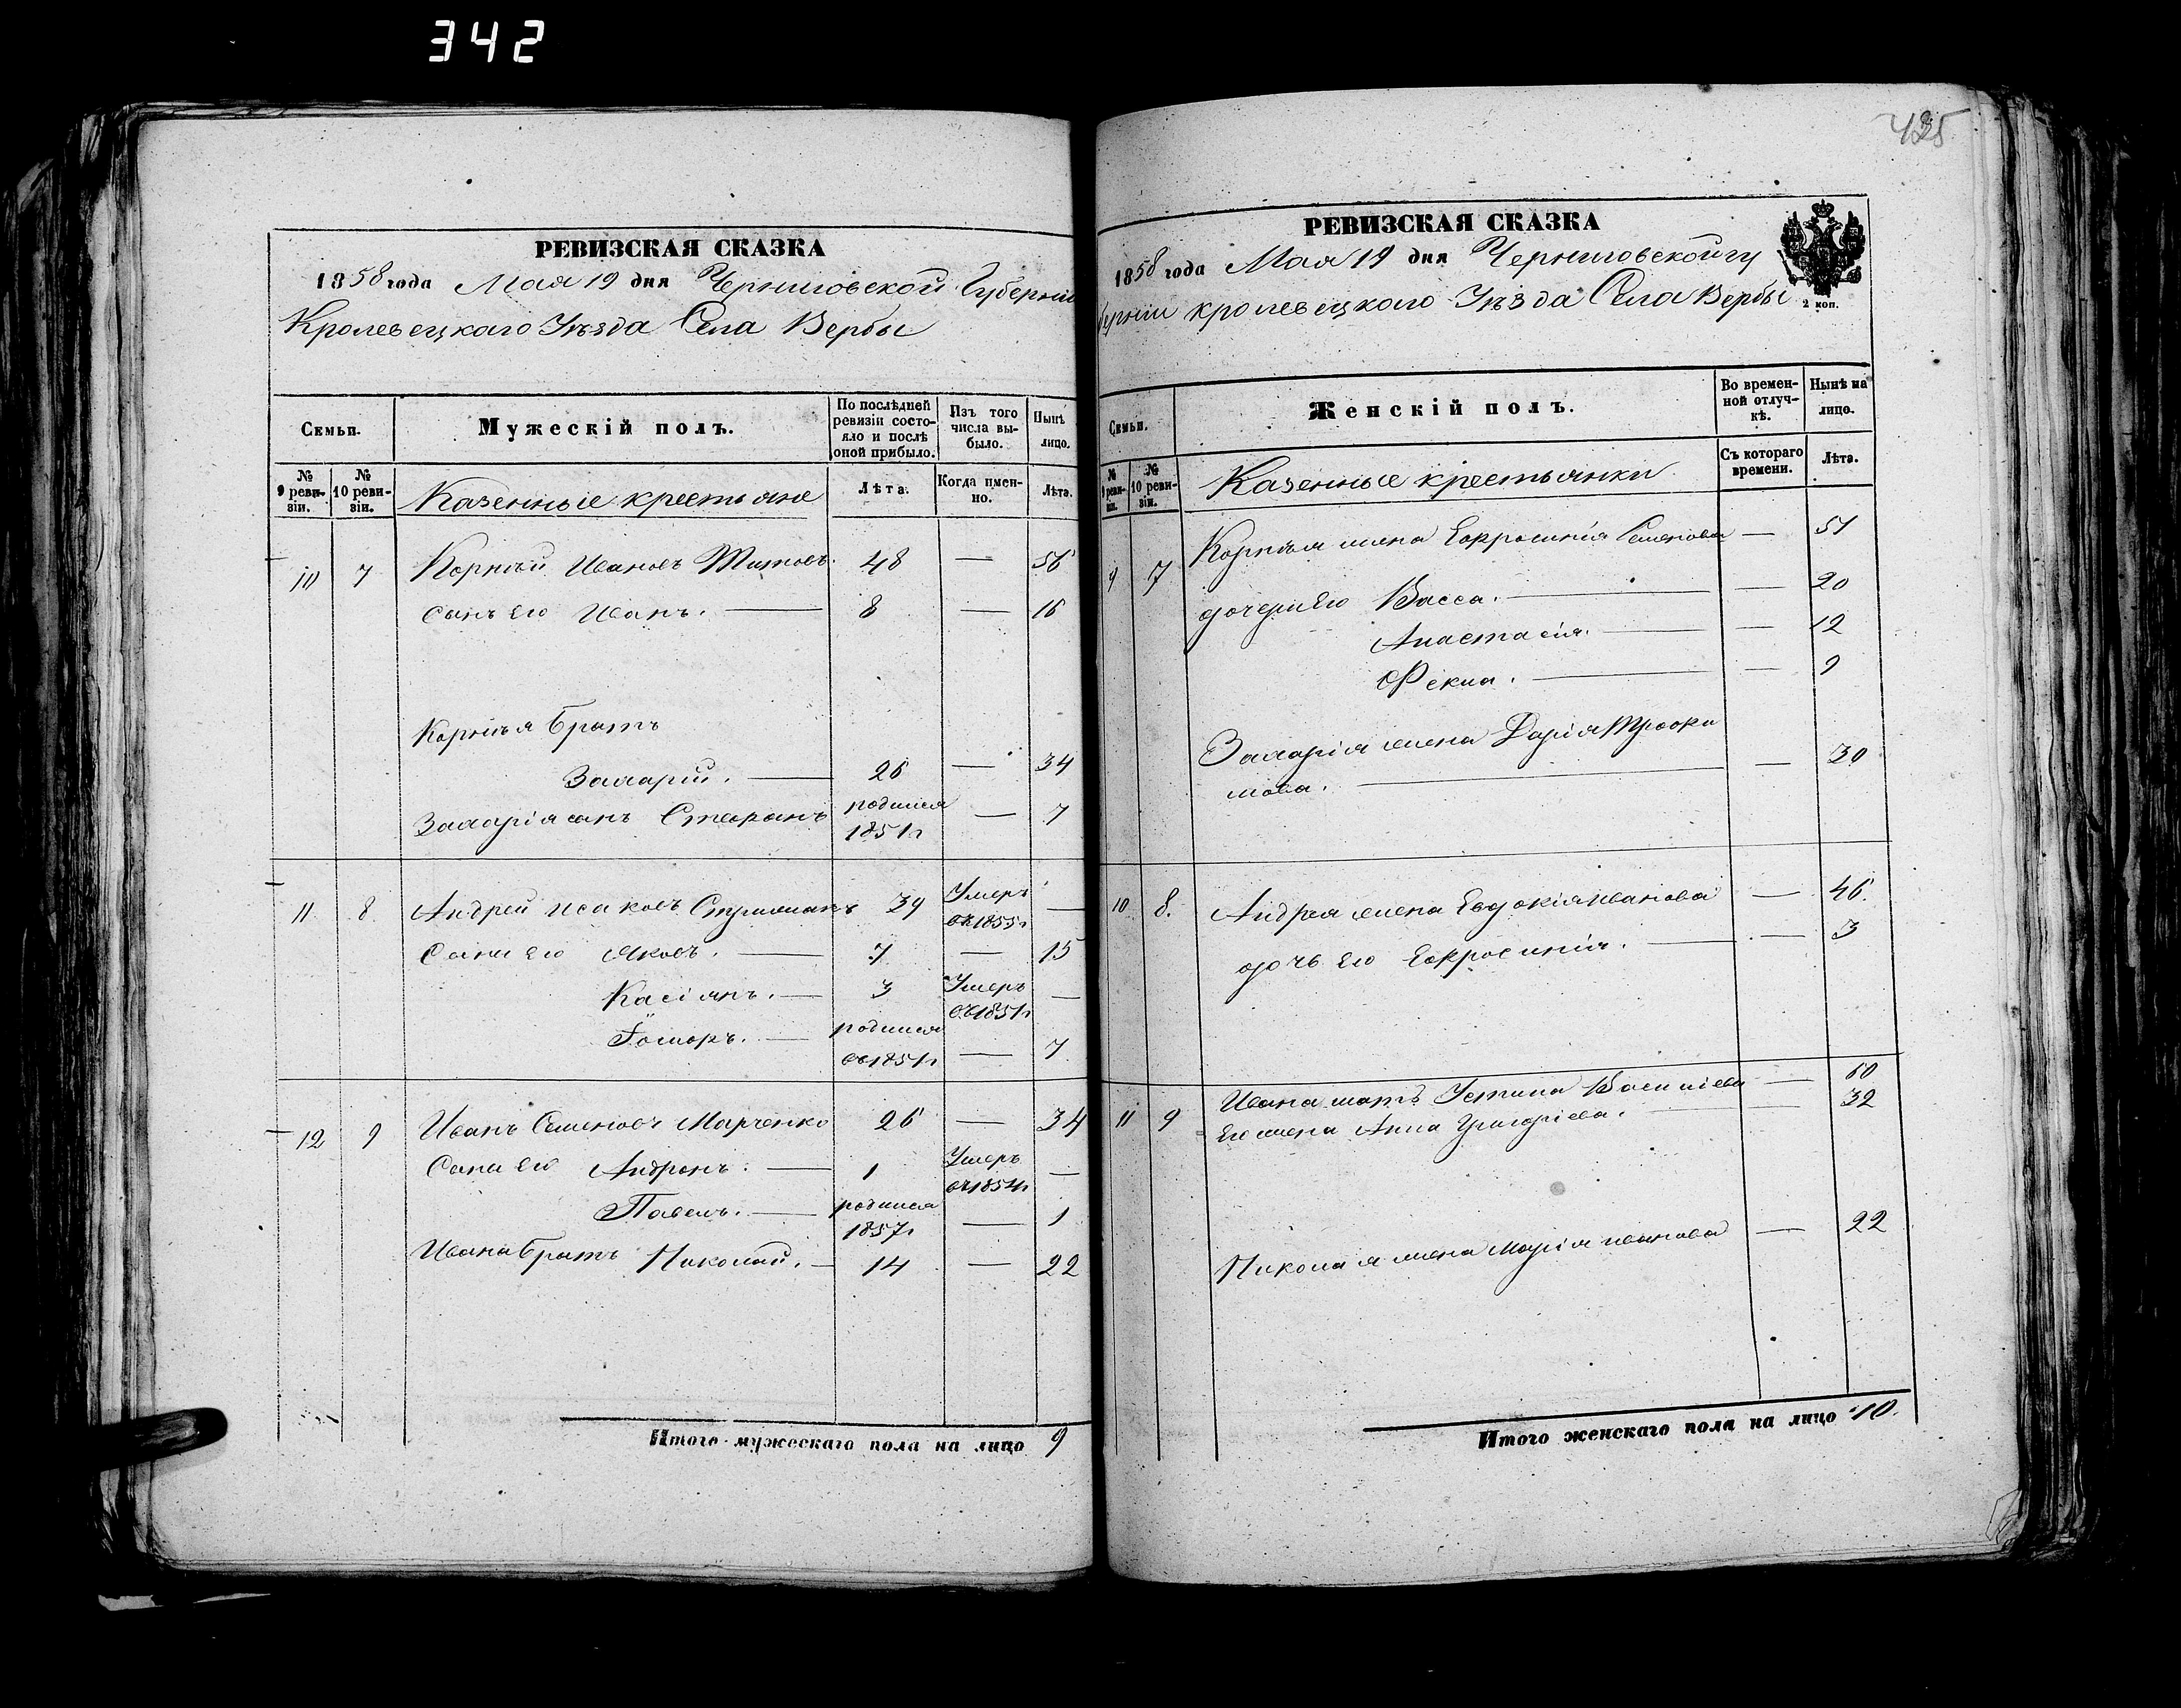 342
425
РЕВИЗСКАЯ СКАЗКА
1858 года Мая 19 дня Черниговской Губерніи
Кролевецкаго Уѣзда Села Вербы
Семьи.
Мужескій полъ.
По послѣдней ревизіи состояло и послѣ оной прибыло.
Изъ того числа выбыло.
Нынѣ лицо.
№ 9 ревизіи.
№ 10 ревизіи.
Казенные крестьяне
Лѣта.
Когда именно.
Лѣта.
10 7 Корнѣй Ивановъ Титовъ. 48 — 56
Сынъ его Иванъ. — 8 — 16
Корнѣя братъ
Захарій. — 26 — 34
Захарія сынъ Стефанъ родился 1851 г — 7
11 8 Андрей Исаковъ 39 Умеръ въ 1855 г —
Сыны его Яковъ. — 7 — 15
Касіянъ. — 3 Умеръ въ 1851 г —
родился въ 1851 г — 7
12 9 Иванъ Семеновъ Марченко 26 — 34
Сыны его Андронъ. — 1 Умеръ въ 1854 г —
Павелъ. — родился 1857 г — 1
Ивана братъ Николай. — 14 — 22
Итого мужескаго пола на лицо 9
РЕВИЗСКАЯ СКАЗКА
1858 года Мая 19 дня Черниговской гу
берніи кролевецкаго Уѣзда Села Вербы
2 коп.
Семьи.
Женскій полъ.
Во временной отлучкѣ.
Нынѣ на лицо.
№ 9 ревизіи.
№ 10 ревизіи.
Казенные крестьянки
Съ котораго времени.
Лѣта.
9 7 Корнѣя жена Евфросинія Семенова — 51
дочери его Васса. — — 20
Анастасія. — — 12
Фекла. — — 9
Захарія жена Дарія Трофи
мова. — — 30
10 8. Андрея жена Евдокія Иванова — 46.
дочь его Евфросинія. — — 3
11 9 Ивана мать Устина Василіева — 60
Его жена Анна Григоріева. — 32
Николая жена Марія Иванова — 22
Итого женскаго пола на лицо 10.